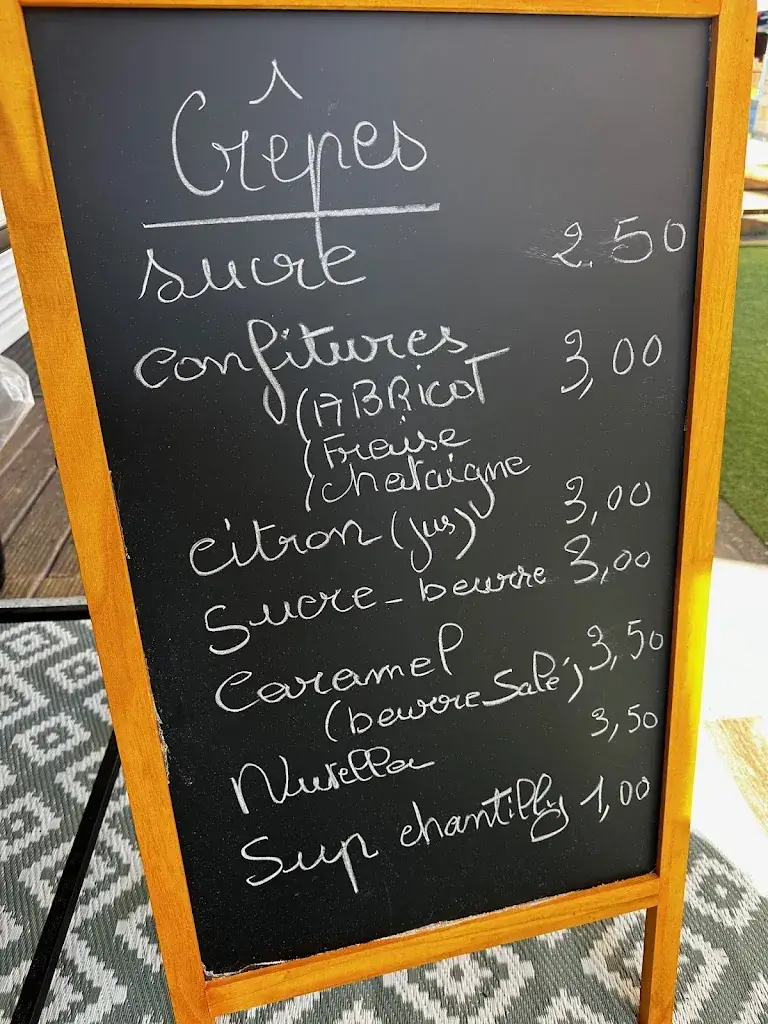 Crêpes
sucre 2,50
confitures 3,00
(ABRicot
(Fraise
(chataigne
citron (jus) 3,00
Sucre-beurre 3,00
Caramel 3,50
(beurre Salé)
Nutella 3,50
Sup chantilly 1,00